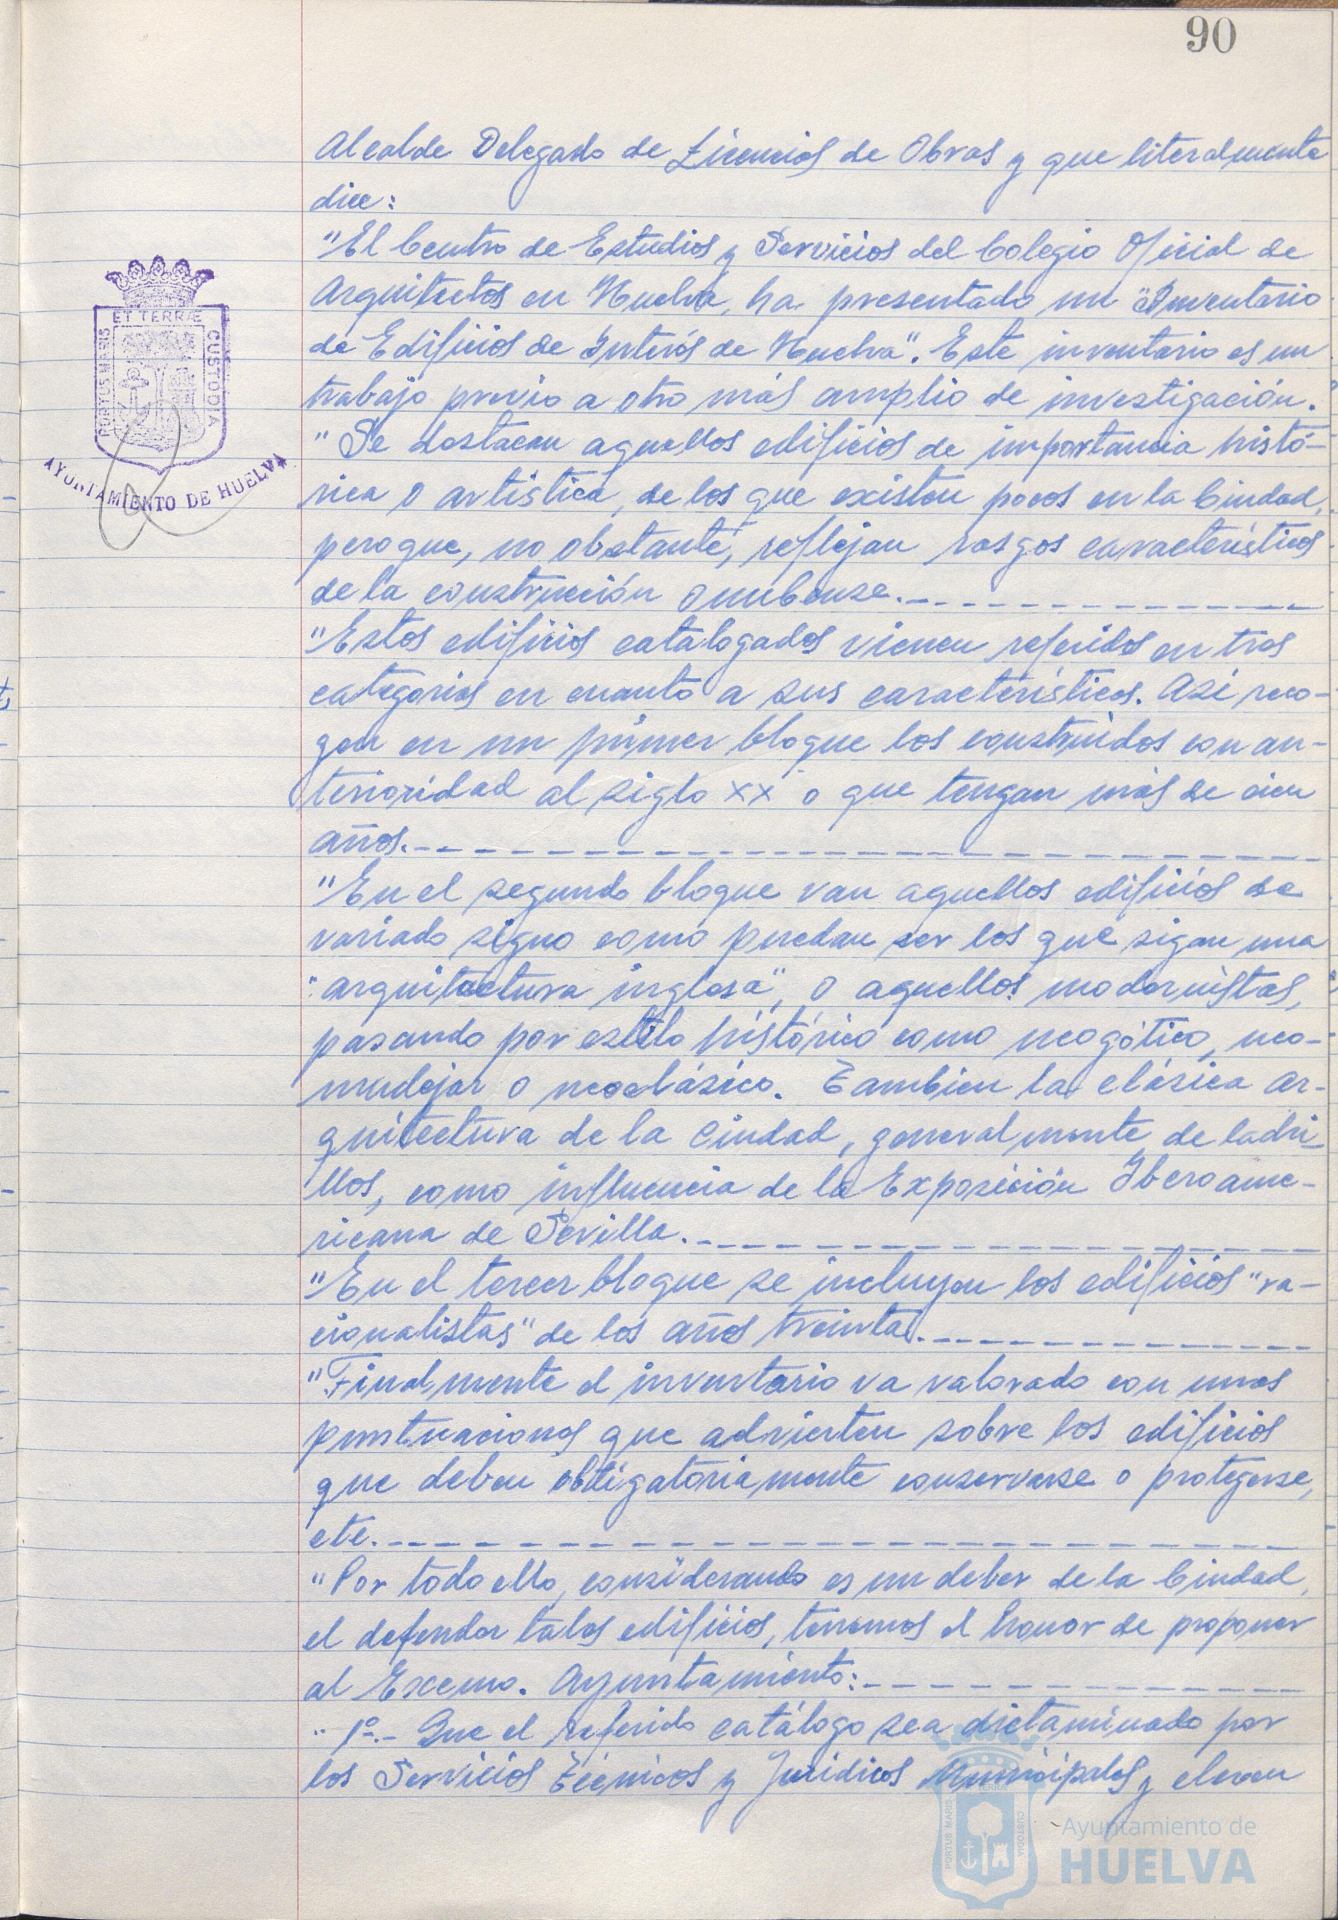 90
Alcalde Delegado de Licencias de Obras y que literalmente
dice:
"El Centro de Estudios y Servicios del Colegio Oficial de
Arquitectos en Huelva, ha presentado un "Inventario
de Edificios de Interés de Huelva". Este inventario es un
trabajo previo a otro más amplio de investigación.
"Se destacan aquellos edificios de importancia histó-
rica o artística, de los que existen pocos en la Ciudad,
pero que, no obstante, reflejan rasgos característicos
de la construcción onubense.
"Estos edificios catalogados vienen referidos en tres
categorías en cuanto a sus características. Así reco-
gen en un primer bloque los construidos con an-
terioridad al siglo XX o que tengan más de cien
años.
"En el segundo bloque van aquellos edificios de
variado signo como puedan ser los que sigan una
"arquitectura inglesa", o aquellos modernistas,
pasando por estilo histórico como neogótico, neo-
mudejar o neoclásico. Tambien la clásica ar-
quitectura de la Ciudad, generalmente de ladri-
llos, como influencia de la Exposición Iberoame-
ricana de Sevilla.
"En el tercer bloque se incluyen los edificios "ra-
cionalistas" de los años treinta.
"Finalmente el inventario va valorado con unas
puntuaciones que advierten sobre los edificios
que deben obligatoriamente conservarse o protegerse,
etc.
"Por todo ello, considerando es un deber de la Ciudad,
el defender tales edificios, tenemos el honor de proponer
al Excmo. Ayuntamiento:
"1º.- Que el referido catálogo sea dictaminado por
los Servicios Técnicos y Jurídicos Municipales y elevan
PORTUS MARIS
ET TERRÆ
CUSTODIA
AYUNTAMIENTO DE HUELVA
PORTUS MARIS
CUSTODIA
Ayuntamiento de
HUELVA